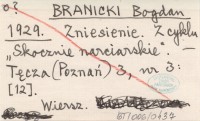 o? BRANICKI Bogdan
1929. Zniesienie. Z cyklu
„Skocznie narciarskie". —
Tęcza (Poznań) 3, nr 3:
[12].
Wiersz.
BTI 006/0437